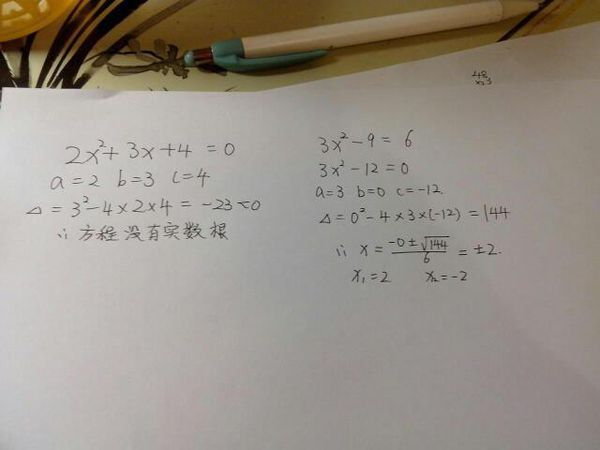 48
x3
2x²+3x+4=0
a=2 b=3 c=4
△=3²-4×2×4=-23<0
∴方程没有实数根
3x²-9=6
3x²-12=0
a=3 b=0 c=-12.
△=0²-4×3×(-12)=144
∴ x=(-0±√144)/6=±2.
x₁=2 x₂=-2